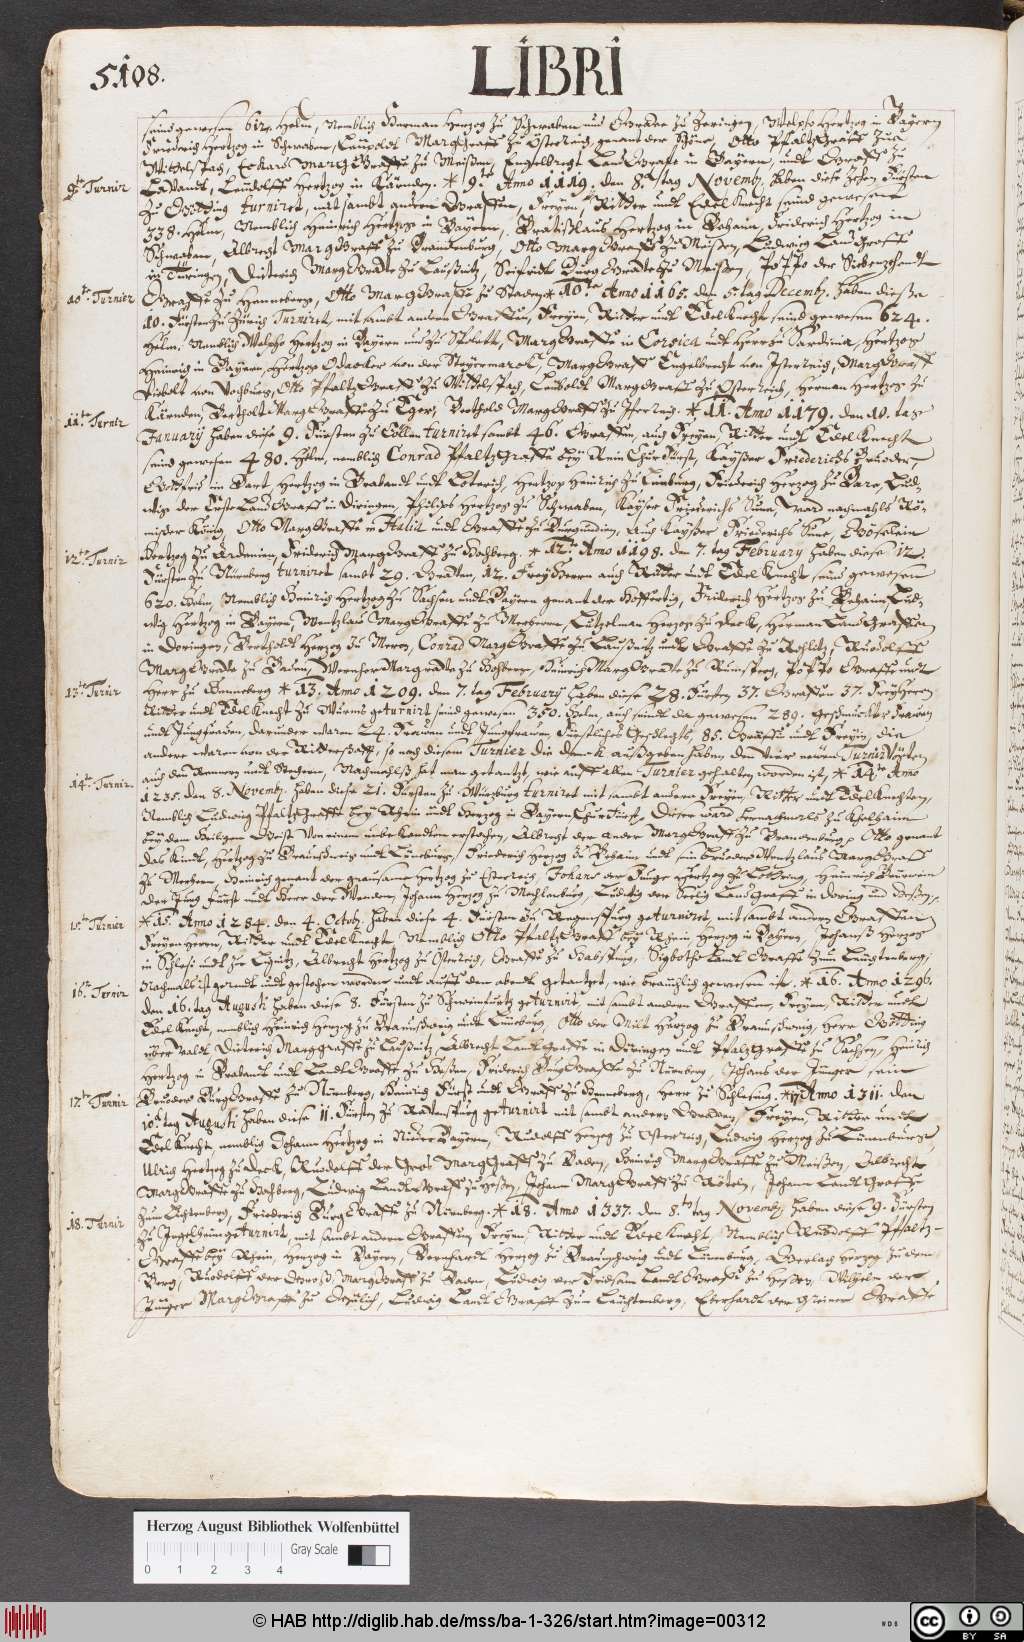 5108.
LIBRI
seind gewesen 612. Helm, Nemblich Herman Herzog zu Schwaben und Grave zu Zeringen, Welpho Hertzog in Bayern
Friederich Hertzog in Schwaben, Leupoldt MargGraff zu Österreich, genant der Schöne, Otto PfaltzGraff zue
Wittelspach, Eckard MargGraff zu Meißen, Engelbregt LandGraff in Bayern, undt Graff zu
9te Turnir
Lavandt, Leudolff Hertzog in Kärnden. * 9te Anno 1119. den 8. tag Novemb. haben diese zehen Fürsten
zu Götting turniret, mit sambt andern Graffen, Freyen, Ritter undt Edel Knecht seind gewesen
338. Helm, Nemblich Heinrich Hertzog in Bayern, Vratislaus Hertzog in Behaim, Friderich Hertzog in
Schwaben, Albrecht MargGraff zu Brandenburg, Otto MargGraff zu Meißen, Ludwig LandGraff
in Türingen, Dieterich MargGraff zu Laußnitz, Seifridt BurgGraff zu Meißen, Poppo der Siebenzehendt
10te Turnier
Graffe zu Henneberg, Otto MargGraffe zu Staden * 10te Anno 1165. den 5. tag Decemb. haben dieße
10. Fürsten zu Zürich Turniret, mit sambt andern Graffen, Freyen, Ritter undt Edel Knecht seind gewesen 624.
Helm, Nemblich Welpho Hertzog in Bayern und zu Spolett, MargGraffe in Corsica undt Herr zu Sardinia, Hertzog
Heinrich in Bayern, Hertzog Odacker von der Steyermarck, MargGraff Engelbrecht von Isterreich, MargGraff
Diebolt von Vohburg, Otto PfaltzGraff zu Wittelspach, Leupoldt MargGraff zu Osterreich, Herman Hertzog zu
11te Turnir
Kärnden, Bertholt MargGraffe zu Eger, Berthold MargGraff zu Isterreich. * 11. Anno 1179. den 10. tag
January haben diese 9. Fürsten zu Cöllen turniret sambt 46. Graffen, auch Freyen, Ritter undt Edel Knecht
seind gewesen 480. Helm, nemblich Conrad PfaltzGraffe bey Rein ChurFürst, Kayßer Friederichs Brueder,
Gottfrid im Bart, Hertzog in Brabandt undt Loterich, Hertzog Heinrich zu Limburg, Friederich Herzog zu Bare, Lud-
wig der Erste LandGraff in Diringen, Philips Hertzog zu Schwaben, Kayser Friederichs Sune, ward nachmahls Rö-
mischer König, Otto MargGraffe in Italia undt Graffe zu Burgundien, Auch Kayßer Friederichs Sune,
12te Turnir
Hertzog zu Ardenien, Friderich MargGraff zu Hochberg. * 12te Anno 1198. den 7. tag February haben diese 12.
Fürsten zu Nürnberg turniret sambt 29. Graffen, 12. FreyHerrn auch Ritter undt Edel Knecht, seind gewesen
620. Helm, Nemblich Heinrich Hertzog zu Sachsen undt Bayern genant der Hoffertig, Friderich Hertzog zu Behaim, Lud-
wig Hertzog in Bayern, Wentzlaus MargGraff zu Merhern, Lutzelman Herzog zu Deck, Herman LandGraffen
in Doringen, Bertholdt Herzog zu Meron, Conrad MargGraffe zu Laußnitz undt Graffe zu Rochlitz, Ruedolff
MargGraffe zu Baden, Wernher MargGraff zu Hochberg, Heinrich MargGraff zu Rumsperg, Poppo Graffe undt
13te Turnir
Herr zu Henneberg * 13. Anno 1209. den 7. tag February haben diese 28. Fürsten 37. Graffen 37. FreyHerrn
Ritter undt Edel Knecht zu Wurms geturnirt seind gewesen 350. Helm, auch seindt da gewesen 289. geschmückter Frawen
undt Jungfrawen, darunder waren 24. Frawen undt Jungfrawen Fürstliches Geschlechts, 85. Gräffin undt Freyin, die
andere waren von der Ritterschafft, so nach diesem Turnier die denck außgeben haben, den vier newen Turnir Vögten,
14te Turnir.
auch den Rennern undt Stechern, Nachmahlß hat man getantzt, wie auff allen Turnier gehalten worden ist, * 14te Anno
1235. den 8. Novemb. haben diese 21. Fürsten zu Würzburg turniret mit sambt andern Freyen, Ritter undt Edel Knechten,
Nemblich Ludwig PfaltzGraffe bey Rhein undt Herzog in Bayern ChurFürst, Dieser ward hernachmals zu Khelhaim
bey dem Heiligen Geist von einem unbekandten erstochen, Albrecht der ander MargGraff zu Brandenburg, Otto genant
das Kindt, Hertzog zu Braunschweig undt Lüneburg, Friederich Herzog zu Behaim undt sein brueder Wentzlaus MargGraff
zu Merhern, Heinrich genant der grausame Hertzog zu Osterreich, Johans der Junge Hertzog zu Lothring, Heinrich Burwein
der Jung Fürst undt Herr der Wenden, Johann Herzog zu Mechlenburg, Ludwig der Seelig LandGraffe in Doring und Heßen,
15te Turnier
* 15te Anno 1284. den 4. Octob. haben diese 4. Fürsten zu Regenspurg geturniret, mit sambt andern Graffen
FreyenHerrn, Ritter undt Edel Knecht, Nemblich Otto PfaltzGraff bey Rhein Herzog in Bayern, Johanß Herzog
in Schlesi undt zur Lignitz, Albrecht Hertzog zu Osterreich, Graffe zu Habspurg, Sigbotho LandtGraffe zum Leuchtenberg,
16te Turnir
Nachmals ist gerendt undt gestochen worden undt auff den abendt getantzet, wie breuchlich gewesen ist. * 16. Anno 1296.
den 16. tag Augusti haben diese 8. Fürsten zu Schweinfurtt geturnirt mit sambt andern Graffen, Freyen, Ritter undt
Edel Knecht, nemblich Heinrich Herzog zu Braunschweig undt Lüneburg, Otto der Milt Hertzog zu Braunschweig, Herr Götting
über Waldt, Dieterich MargGraffe zu Laußnitz, Albrecht LandtGraffe in Doringen undt PfaltzGraffe zu Sachsen, Heinrich
Hertzog in Brabandt undt LandtGraffe zu Heßen, Friderich BurgGraffe zu Nürmberg, Johans der Jünger, sein
17te Turnir
Brueder BurgGraffe zu Nürnberg, Heinrich Fürst undt Graff zu Henneberg, Herr zu Schlesing. * 17te Anno 1311. den
10te tag Augusti haben diese 11. Fürsten zu Ravenspurg geturnirt mit sambt andern Graffen, Freyen, Ritter undt
Edel Knecht, nemblich Johann Hertzog in Nider Bayern, Rudolff Herzog zu Österreich, Ludwig Herzog zu Lünenburg,
Ulrich Hertzog zu Deck, Ruodolff der Groß MargGraff zu Baden, Heinrich MargGraffe zu Meißen, Albrecht
MargGraffe zu Hochberg, Ludwig LandtGraff zu Heßen, Johann MargGraff zu Röteln, Johann LandtGraff
18. Turnir
zum Leuchtenberg, Friederich BurgGraffe zu Nürnberg. * 18. Anno 1337. den 8te tag Novemb. haben diese 9. Fürsten
zu Ingelheim geturnirt, mit sambt andern Graffen, Freyen, Ritter undt Edel Knecht, Nemblich Ruodolff Pfaltz-
Graffe bey Rhein, Herzog in Bayern, Bernhardt Herzog zu Braunschweig undt Lünenburg, Gerlach Herzog zu dem
Berg, Ruodolff der Groß, MargGraff zu Baden, Ludwig der Fridsam LandtGraff zu Heßen, Wilhelm der
Jünger MargGraff zu Gülich, Ludwig LandtGraff zum Leuchtenberg, Eberhardt der Greiner Graffe
Herzog August Bibliothek Wolfenbüttel
Gray Scale
0 1 2 3 4
© HAB http://diglib.hab.de/mss/ba-1-326/start.htm?image=00312
CC BY SA